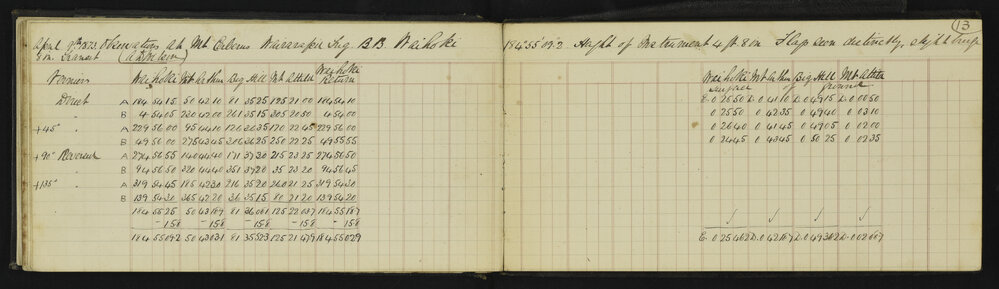 13
April 9th 1873 Observations at Mt Erebus Wairarapa Trig B.B. Waihoki 184.55 09.2 Height of Instrument 4 ft 8 in Flags seen distinctly, slight
8 in. Transit
Verniers Waihoki Mt Arthur Big Hill Mt Return Waihoki
Direct A 184 54 15 50 42 10 81 35 25 125 21 00 184 54 10
" B 4 54 05 230 42 00 261 35 15 305 20 50 4 54 00
+45° " A 229 56 00 95 44 10 126 36 35 170 22 45 229 56 00
B 49 56 00 275 43 45 306 36 25 350 22 25 49 55 55
+90° Reversed A 274 56 55 140 44 40 171 37 30 215 23 25 274 56 50
" B 94 56 50 320 44 40 351 37 20 35 23 20 94 56 45
+135° " A 319 54 45 185 42 30 216 35 20 260 21 25 319 54 30
B 139 54 30 365 42 20 36 35 15 80 21 20 139 54 20
184 55 25 50 43 18 7 81 36 08 1 125 22 03 7 184 55 18 7
- 15 8 - 15 8 - 15 8 - 15 8 - 15 8
184 55 09 2 50 43 03 1 81 35 52 3 125 21 47 9 184 55 02 9
Waihoki Mt Arthur Big Hill Mt
surface of ground
E. 0 25 50 D. 0 41 10 D. 0 49 15 D. 0 00 50
0 25 50 0 42 35 0 49 40 0 03 10
0 26 40 0 41 45 0 49 05 0 02 00
0 24 45 0 43 45 0 50 25 0 02 35
E. 0 25 46 2 D. 0 42 18 7 D. 0 49 36 2 D. 0 02 08 7